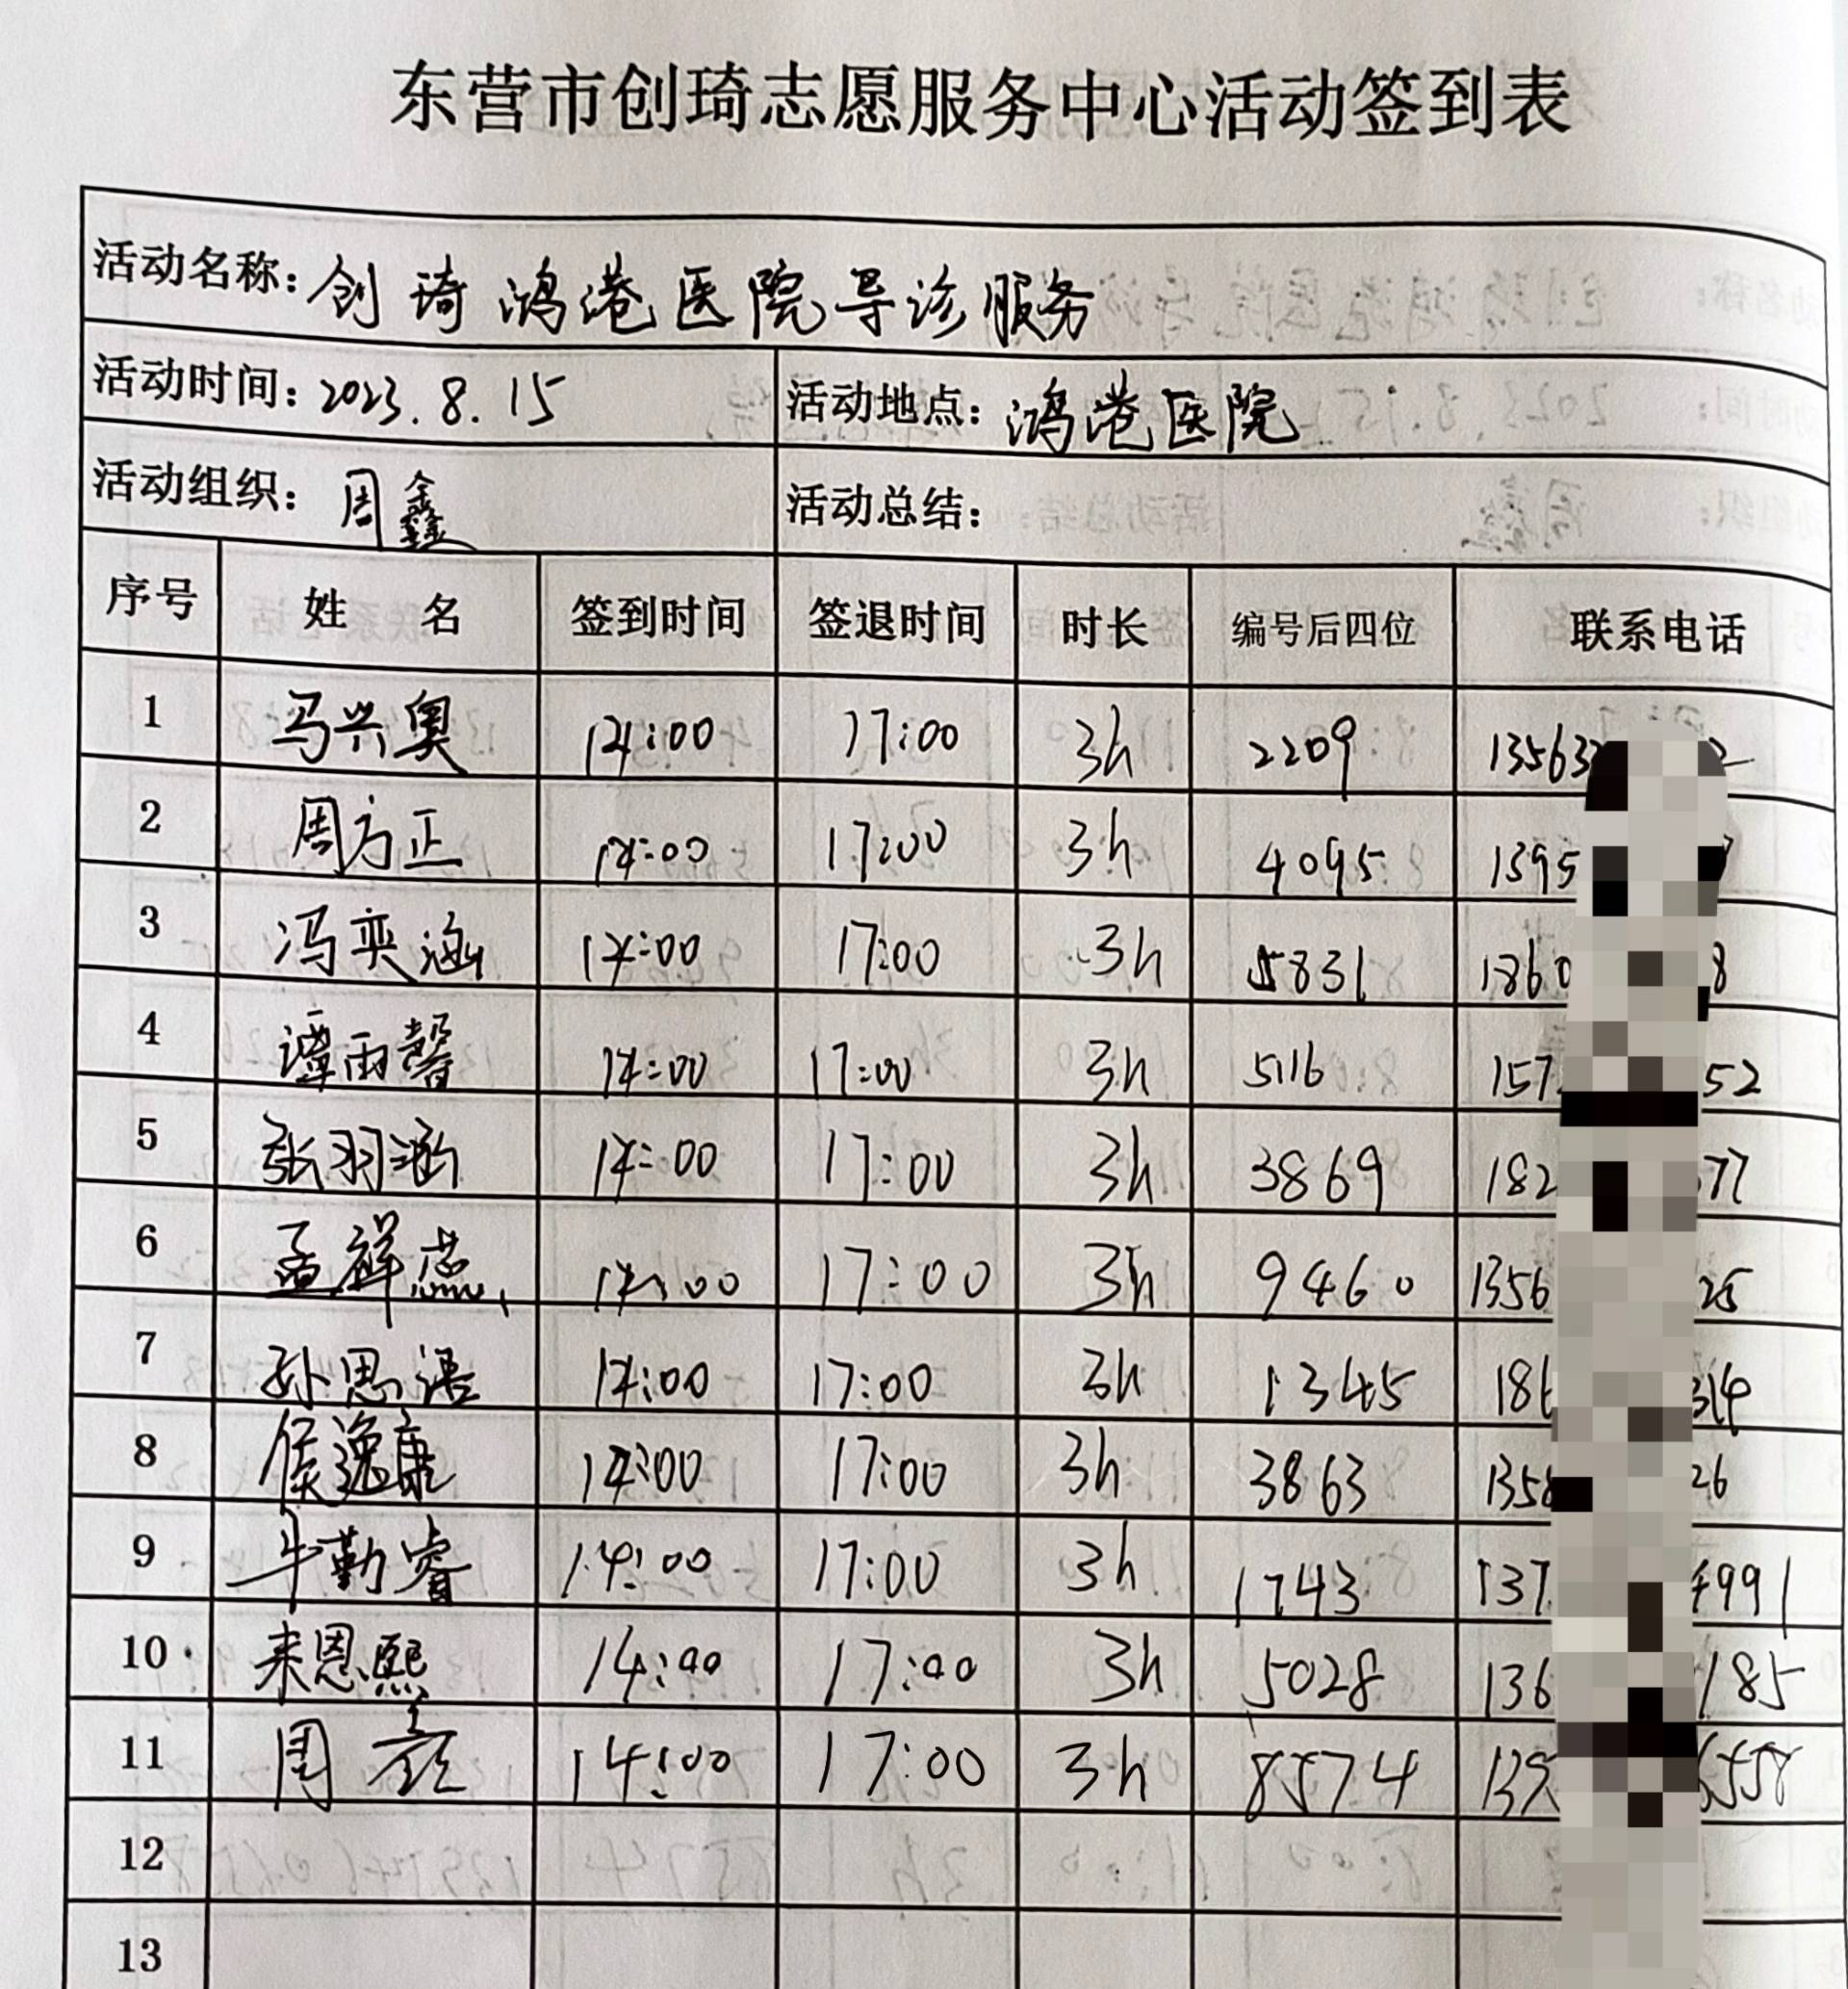 东营市创琦志愿服务中心活动签到表
活动名称：创琦鸿港医院导诊服务
活动时间：2023.8.15 活动地点：鸿港医院
活动组织：周鑫 活动总结：
序号 姓 名 签到时间 签退时间 时长 编号后四位 联系电话
1 马兴奥 14:00 17:00 3h 2209 13563
2 周方正 14:00 17:00 3h 4095 1395
3 冯奕涵 14:00 17:00 3h 5831 1860 8
4 谭雨馨 14:00 17:00 3h 5116 157 52
5 张羽涵 14:00 17:00 3h 3869 182 77
6 孟祥蕊 14:00 17:00 3h 9460 1356 25
7 孙思语 14:00 17:00 3h 1345 186 314
8 侯逸康 14:00 17:00 3h 3863 1358 26
9 牛勤睿 14:00 17:00 3h 1743 137 4991
10 来恩熙 14:00 17:00 3h 5028 136 185
11 周 14:00 17:00 3h 8574 139 6558
12
13